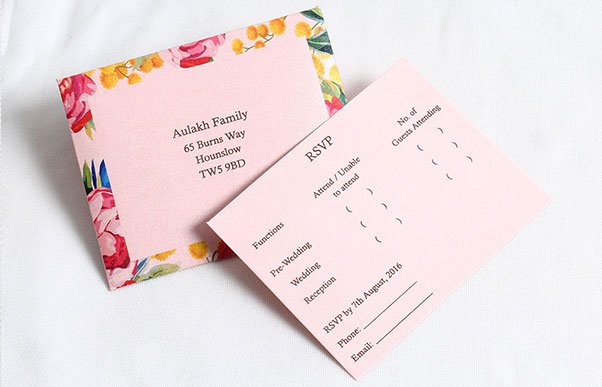 Aulakh Family
65 Burns Way
Hounslow
TW5 9BD
RSVP
Functions Attend / Unable to attend No. of Guests Attending
Pre-Wedding ( ) ( )
Wedding ( ) ( )
Reception ( ) ( )
RSVP by 7th August, 2016
Phone: ____________
Email: ____________